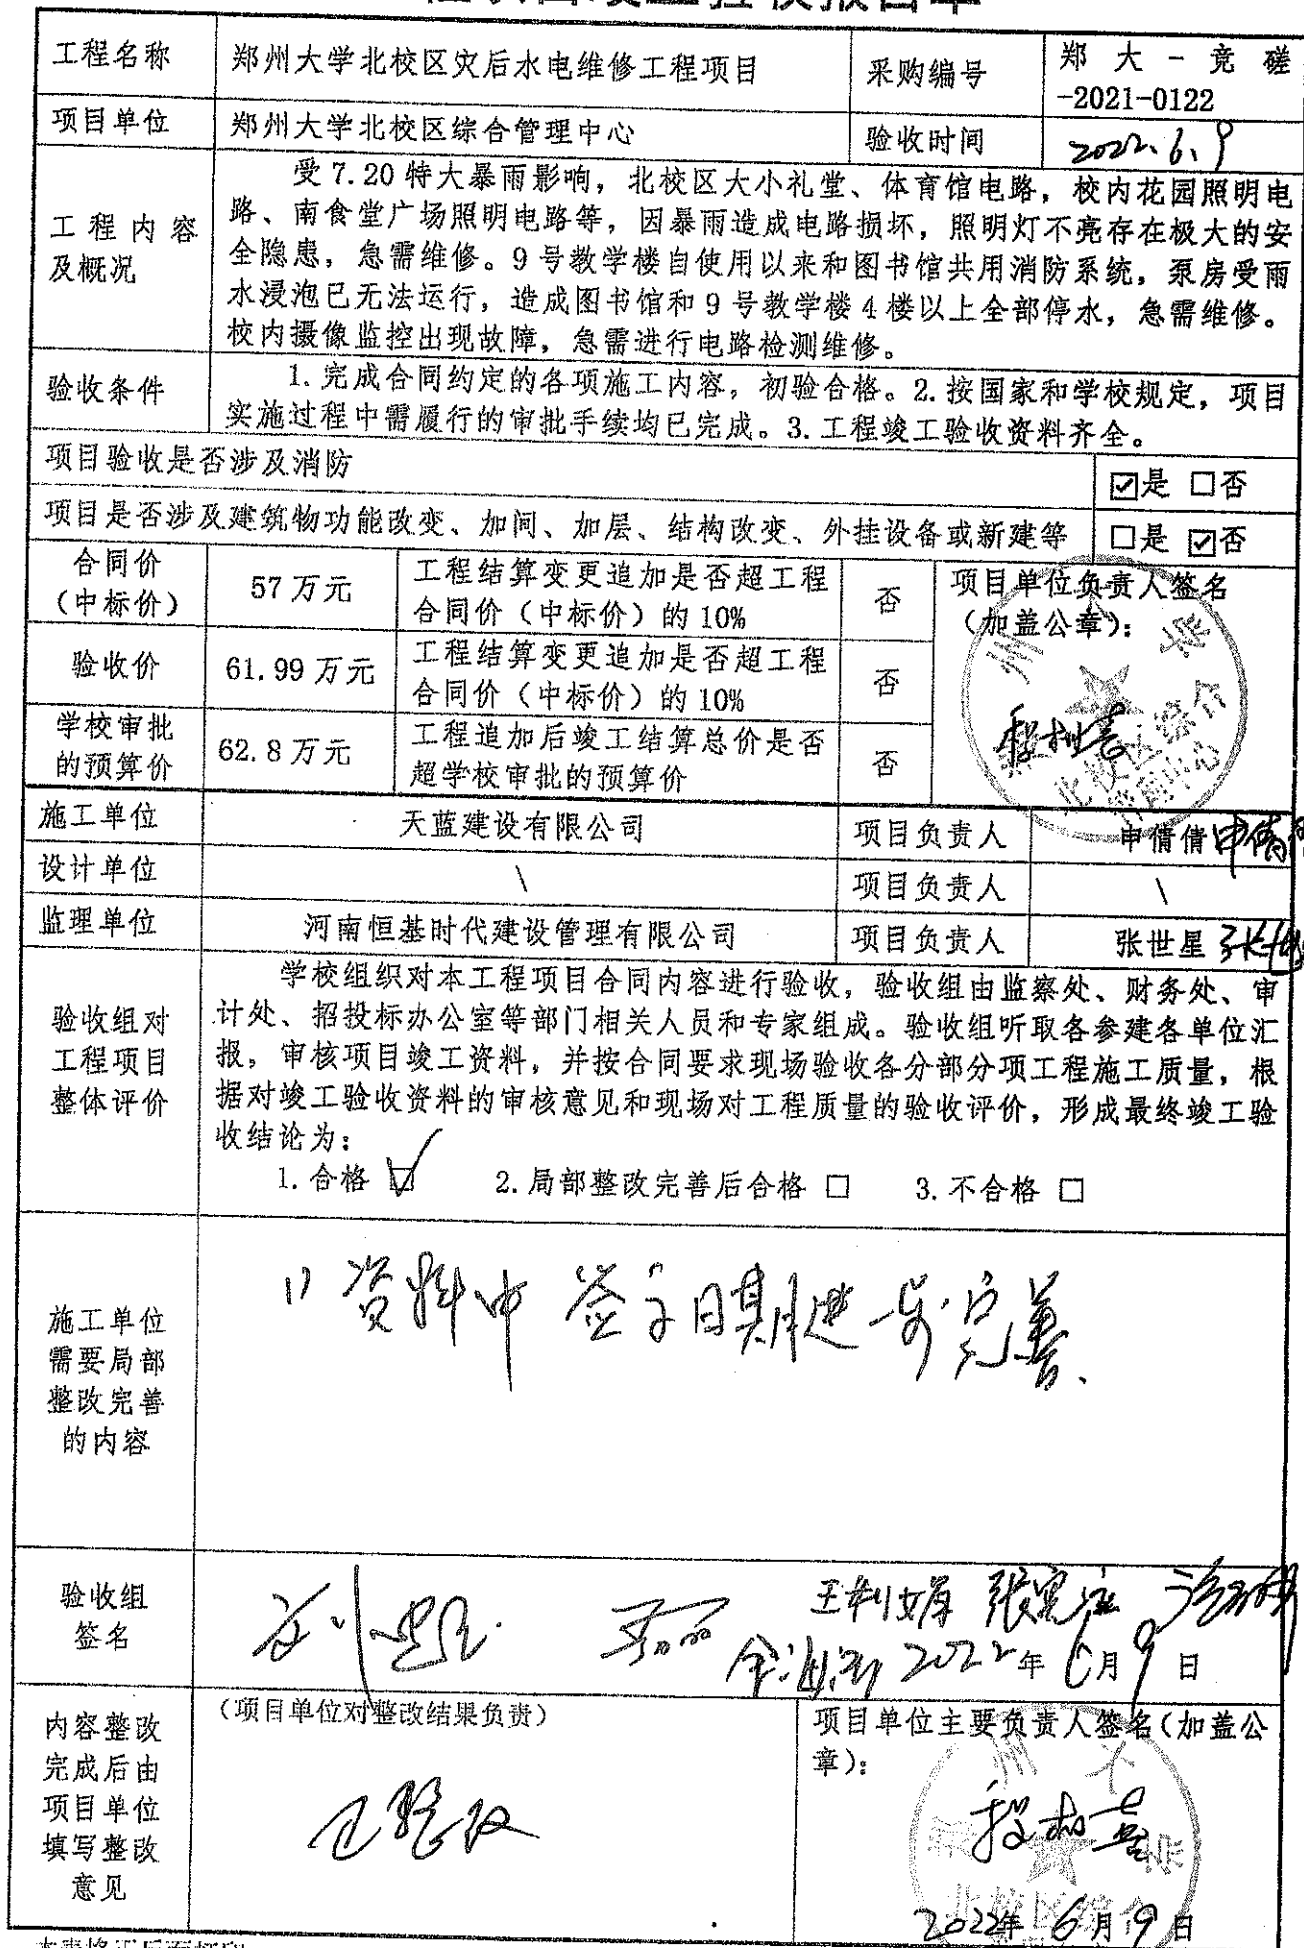 工程名称
郑州大学北校区灾后水电维修工程项目
采购编号
郑大-竞磋
-2021-0122
项目单位
郑州大学北校区综合管理中心
验收时间
2022.6.9
工程内容
及概况
受7.20特大暴雨影响，北校区大小礼堂、体育馆电路，校内花园照明电
路、南食堂广场照明电路等，因暴雨造成电路损坏，照明灯不亮存在极大的安
全隐患，急需维修。9号教学楼自使用以来和图书馆共用消防系统，泵房受雨
水浸泡已无法运行，造成图书馆和9号教学楼4楼以上全部停水，急需维修。
校内摄像监控出现故障，急需进行电路检测维修。
验收条件
1.完成合同约定的各项施工内容，初验合格。2.按国家和学校规定，项目
实施过程中需履行的审批手续均已完成。3.工程竣工验收资料齐全。
项目验收是否涉及消防
☑是 □否
项目是否涉及建筑物功能改变、加间、加层、结构改变、外挂设备或新建等
□是 ☑否
合同价
（中标价）
57万元
工程结算变更追加是否超工程
合同价（中标价）的10%
否
项目单位负责人签名
（加盖公章）：
验收价
61.99万元
工程结算变更追加是否超工程
合同价（中标价）的10%
否
学校审批
的预算价
62.8万元
工程追加后竣工结算总价是否
超学校审批的预算价
否
北校区综合
管理中心
施工单位
天蓝建设有限公司
项目负责人
申倩倩
设计单位
\
项目负责人
\
监理单位
河南恒基时代建设管理有限公司
项目负责人
张世星 张世
验收组对
工程项目
整体评价
学校组织对本工程项目合同内容进行验收，验收组由监察处、财务处、审
计处、招投标办公室等部门相关人员和专家组成。验收组听取各参建各单位汇
报，审核项目竣工资料，并按合同要求现场验收各分部分项工程施工质量，根
据对竣工验收资料的审核意见和现场对工程质量的验收评价，形成最终竣工验
收结论为：
1.合格 ☑ 2.局部整改完善后合格 □ 3.不合格 □
施工单位
需要局部
整改完善
的内容
1) 资料中签字日期进一步完善、
验收组
签名
王利娟
2022年6月9日
内容整改
完成后由
项目单位
填写整改
意见
（项目单位对整改结果负责）
已整改
项目单位主要负责人签名（加盖公
章）：
北校区综合
2022年6月9日